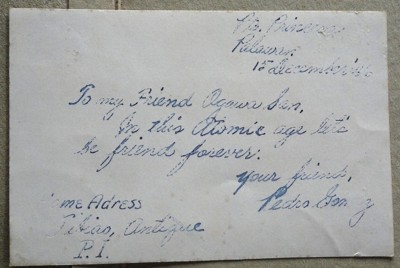 Pto. Princesa
Palawan
15 December
To my Friend Ogawa San,
In this Atomic age let's
be friend forever.
Your friend,
Pedro
Home Adress
Tibiao, Antique
P.I.